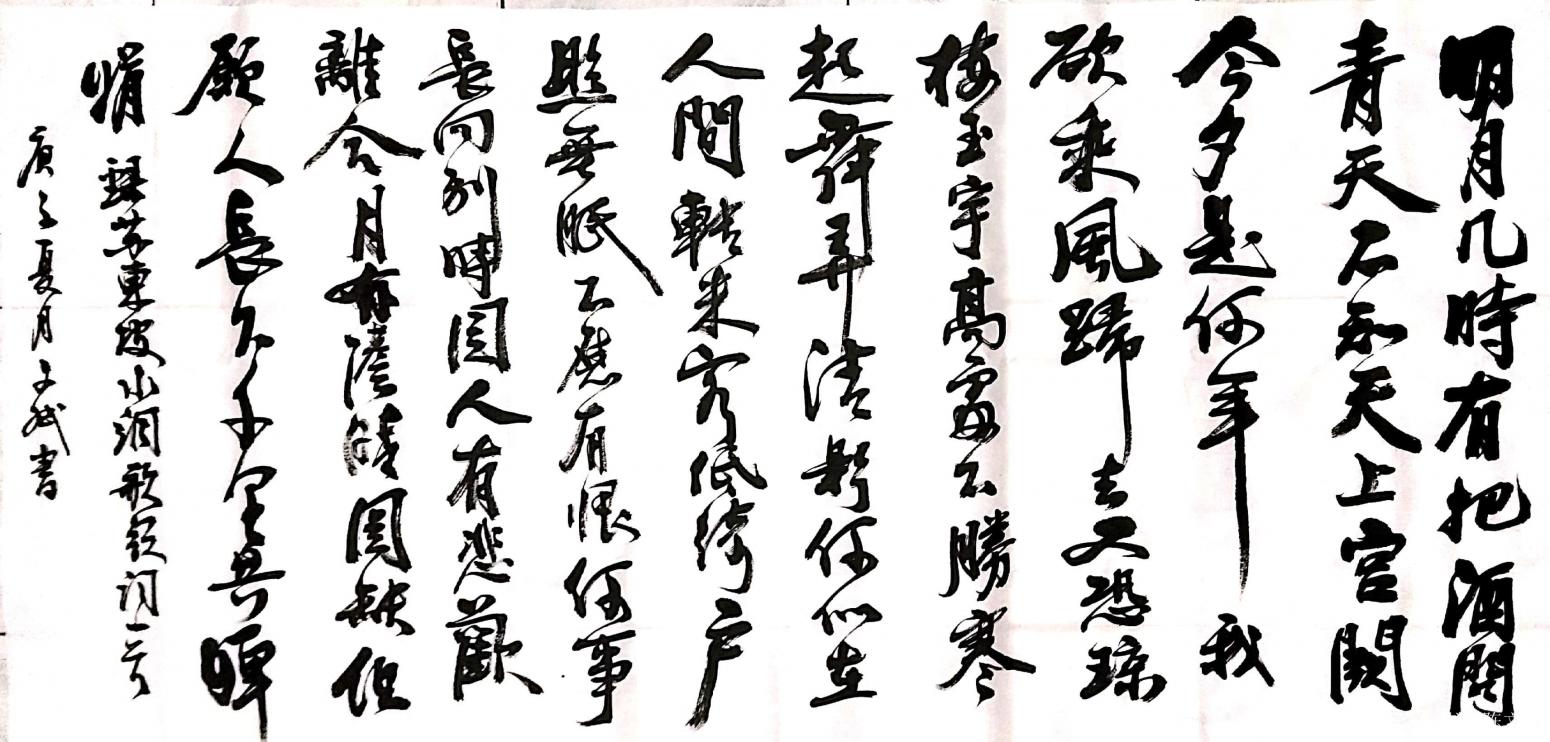 明月几時有把酒問
青天不知天上宫闕
今夕是何年我
欲乘風歸去又恐琼
樓玉宇高處不勝寒
起舞弄清影何似在
人間轉朱低綺户
照無眠不應有恨何事
長向别時圓人有悲歡
離合月有陰晴圓缺但
願人長久千里共嬋
娟 錄苏東坡水調歌頭词一首
庚子夏月文斌書